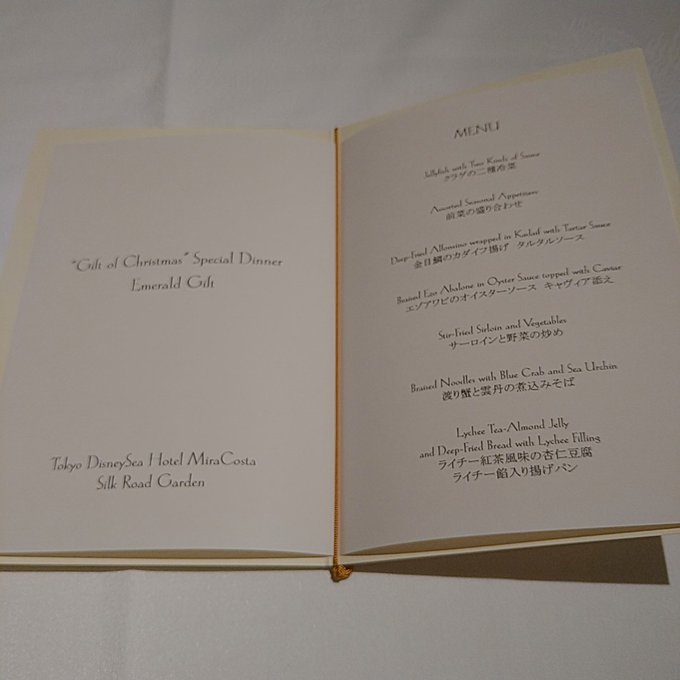 "Gift of Christmas" Special Dinner
Emerald Gift
Tokyo DisneySea Hotel MiraCosta
Silk Road Garden
MENU
Jellyfish with Two Kinds of Sauce
クラゲの二種冷菜
Assorted Seasonal Appetizers
前菜の盛り合わせ
Deep-Fried Alfonsino wrapped in Kadaif with Tartar Sauce
金目鯛のカダイフ揚げ タルタルソース
Braised Ezo Abalone in Oyster Sauce topped with Caviar
エゾアワビのオイスターソース キャヴィア添え
Stir-Fried Sirloin and Vegetables
サーロインと野菜の炒め
Braised Noodles with Blue Crab and Sea Urchin
渡り蟹と雲丹の煮込みそば
Lychee Tea-Almond Jelly
and Deep-Fried Bread with Lychee Filling
ライチー紅茶風味の杏仁豆腐
ライチー餡入り揚げパン